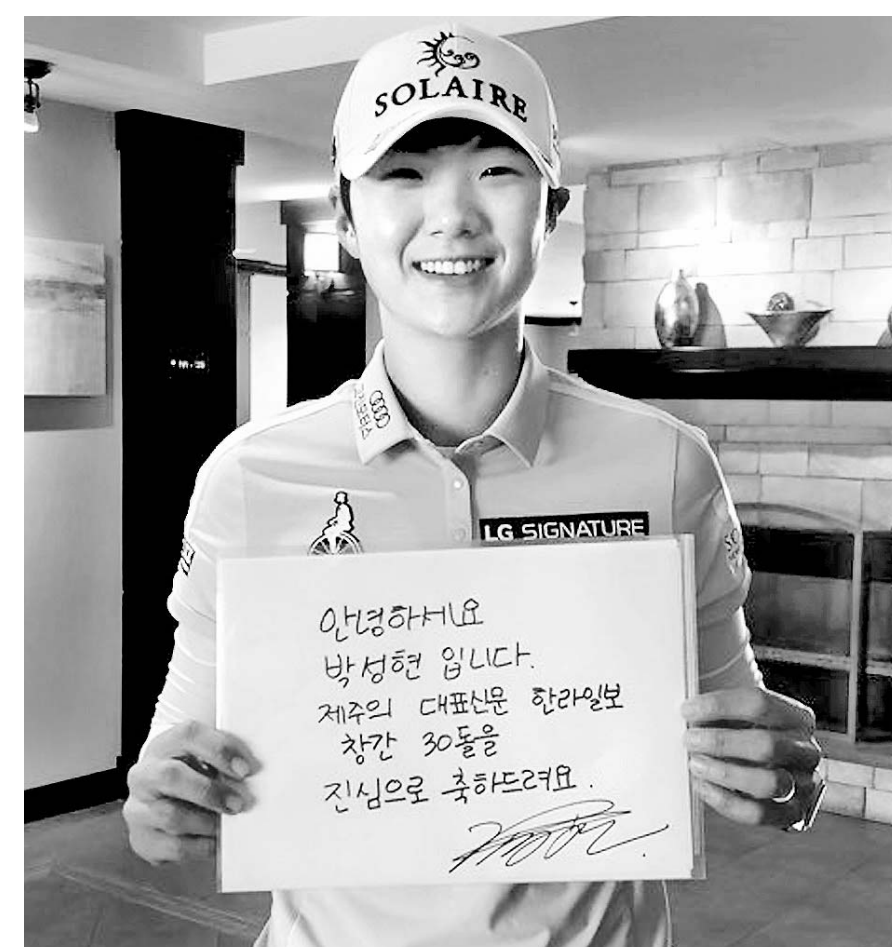 SOLAIRE
LG SIGNATURE
안녕하세요
박성현 입니다.
제주의 대표신문 한라일보
창간 30돌을
진심으로 축하드려요.